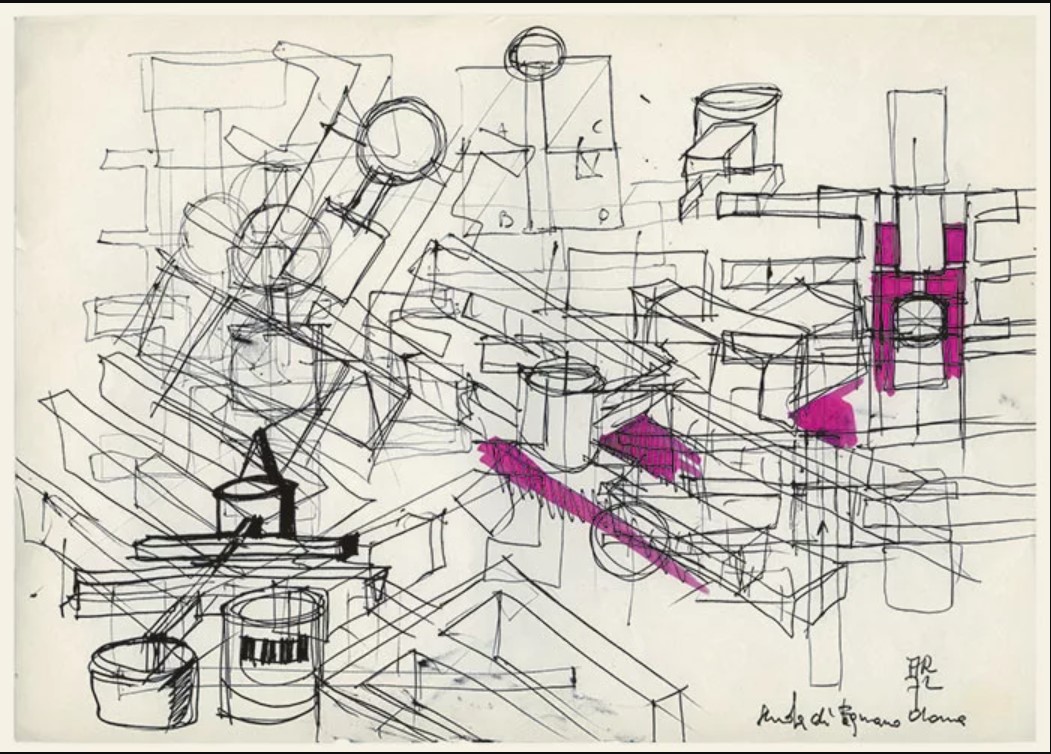 A C
B D
AR
72
Scuola di Fagnano Olona